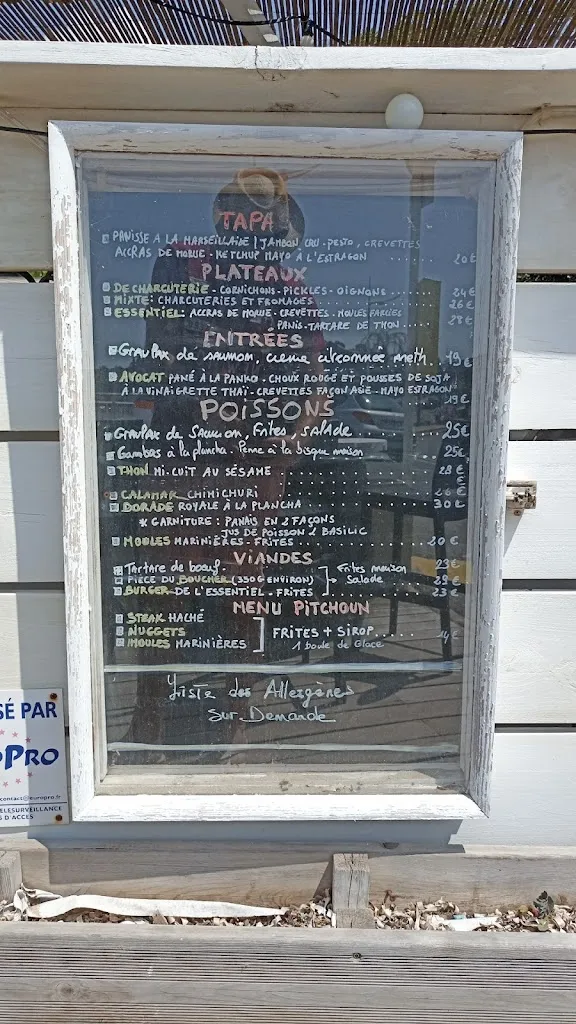 TAPA
PANISSE A LA MARSEILLAISE | JAMBON CRU - PESTO, CREVETTES
ACCRAS DE MORUE - KETCHUP MAYO À L'ESTRAGON ..... 20€
PLATEAUX
DE CHARCUTERIE - CORNICHONS - PICKLES - OIGNONS ..... 24€
MIXTE: CHARCUTERIES ET FROMAGES ..... 26€
ESSENTIEL: ACCRAS DE MORUE - CREVETTES - MOULES FARCIES 28€
PANIS - TARTARE DE THON
ENTRÉES
GravLax de saumon, creme citronnée, aneth. 19€
AVOCAT PANÉ À LA PANKO - CHOUX ROUGE ET POUSSES DE SOJA
À LA VINAIGRETTE THAÏ - CREVETTES FAÇON ASIE - MAYO ESTRAGON
19€
POISSONS
GravLax de Saumon, Frites, salade. 25€
Gambas à la plancha. Penne à la bisque maison 25€
THON MI-CUIT AU SÉSAME ..... 28€
€
CALAMAR CHIMICHURI ..... 26€
DORADE ROYALE À LA PLANCHA ..... 30€
* GARNITURE: PANAIS EN 2 FAÇONS
JUS DE POISSON & BASILIC
MOULES MARINIÈRES - FRITES ..... 20€
VIANDES
Tartare de boeuf Frites maison 23€
PIECE DU BOUCHER (350G ENVIRON) Salade 29€
BURGER DE L'ESSENTIEL - FRITES ..... 23€
MENU PITCHOUN
STEAK HACHÉ
NUGGETS FRITES + SIROP ..... 14€
MOULES MARINIÈRES 1 boule de Glace
Liste des Allergènes
Sur Demande
SÉ PAR
PRO
contact@europro.fr
TELESURVEILLANCE
D'ACCES